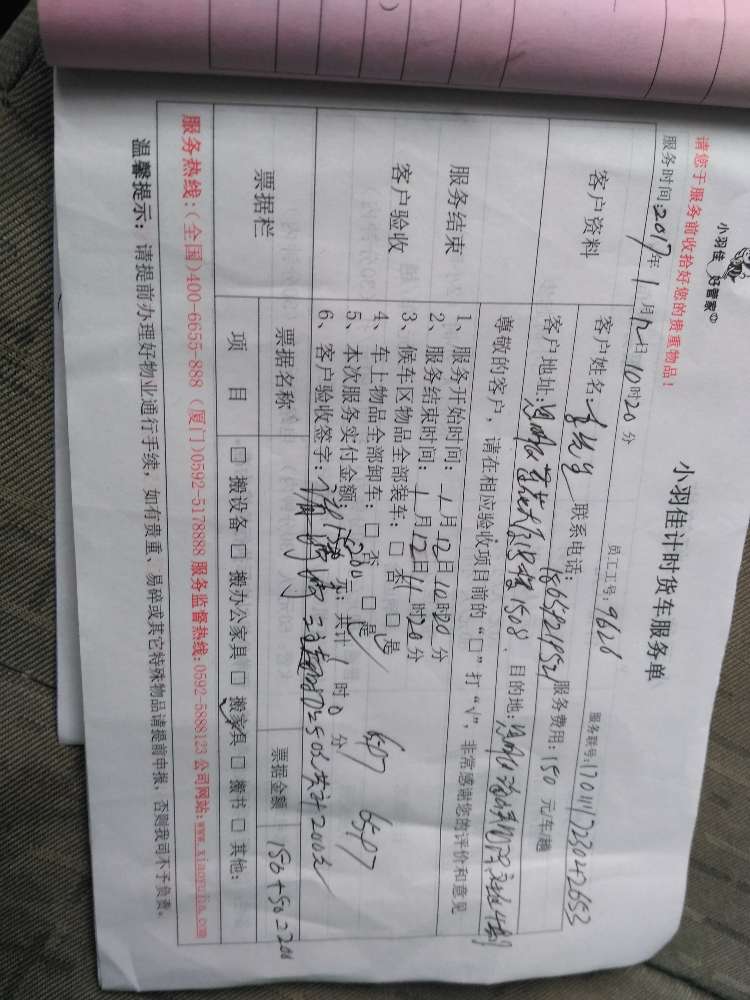 小羽佳 好管家
小羽佳计时货车服务单
请您于服务前收拾好您的贵重物品！
员工工号：9626
服务时间：2017年1月12日10时20分
服务联号：
客户资料
客户姓名： 联系电话： 服务费用：150元/车/趟
客户地址： 1508 目的地：
服务结束
尊敬的客户，请在相应验收项目前的“□”打“√”，非常感谢您的评价和意见
客户验收
1、服务开始时间：1月12日10时20分
2、服务结束时间：1月12日11时20分
3、候车区物品全部装车：□否 □是
4、车上物品全部卸车：□否 □是
5、本次服务实付金额：200元；共计1时0分
6、客户验收签字：
共计200元
票据栏
票据名称 票据金额 150+50=200
项 目 □搬设备 □搬办公家具 □搬家具 □搬书 □其他：
服务热线：(全国)400-6655-888 (厦门)0592-5178888 服务监督热线：0592-5888123 公司网站：www.xiaoyujia.com
温馨提示：请提前办理好物业通行手续，如有贵重、易碎或其它特殊物品请提前申报，否则我司不予负责。